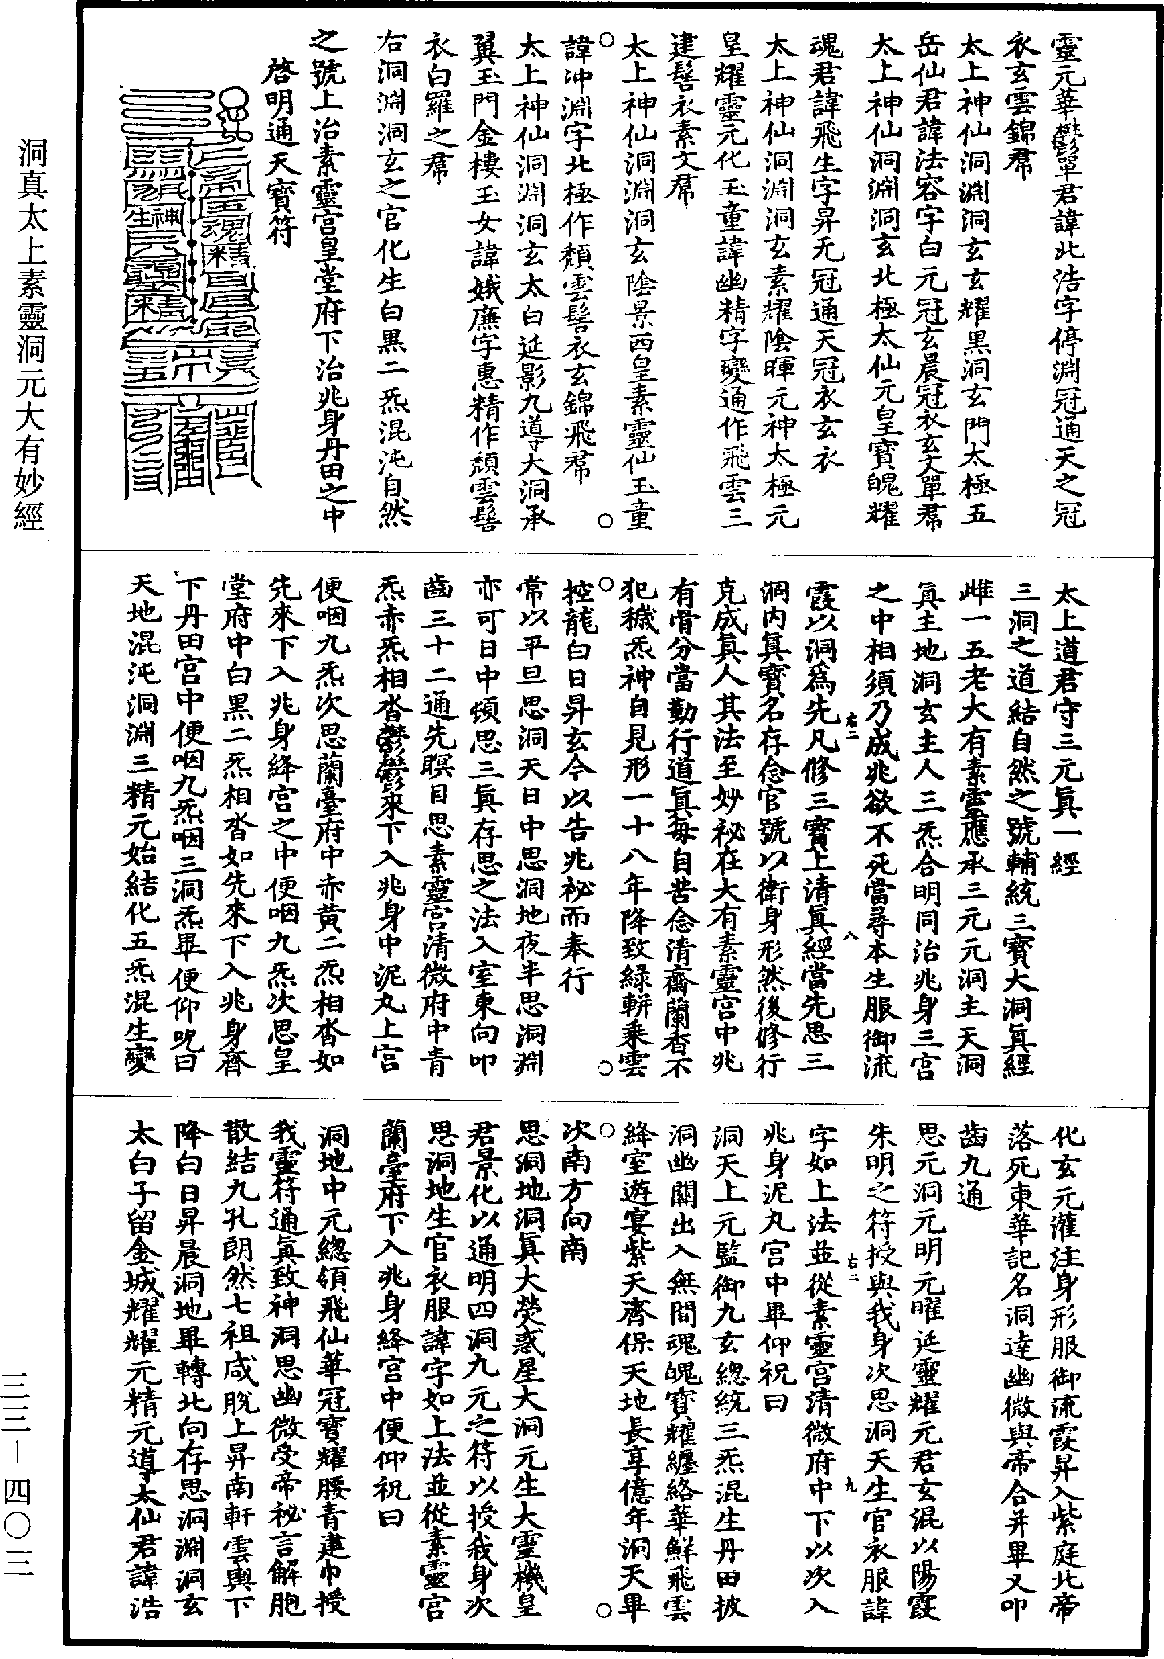 靈元華鬱單君諱北浩字停淵冠通天之冠
衣玄雲錦帬
太上神仙洞淵洞玄玄耀黑洞玄門太極五
岳仙君諱法容字白元冠玄晨冠衣玄文單帬
太上神仙洞淵洞玄北極太仙元皇寶魄耀
魂君諱飛生字昇无冠通天冠衣玄衣
太上神仙洞淵洞玄素耀陰暉元神太極元
皇耀靈元化玉童諱幽精字變通作飛雲三
建髻衣素文帬
太上神仙洞淵洞玄陰景西皇素靈仙玉童
諱冲淵字北極作頹雲髻衣玄錦飛帬
太上神仙洞淵洞玄太白延影九道大洞承
翼玉門金樓玉女諱娥廉字惠精作頹雲髻
衣白羅之帬
右洞淵洞玄之官化生白黑二炁混沌自然
之號上治素靈宮皇堂府下治兆身丹田之中
啓明通天寶符
太上道君守三元真一經
三洞之道結自然之號輔統三寶大洞真經
雌一五老大有素靈應承三元元洞主天洞
真主地洞玄主人三炁合明同治兆身三宮
之中相須乃成兆欲不死當尋本生服御流
霞以洞爲先凡修三寶上清真經當先思三
洞内真寶名存念官號以衛身形然後修行
克成真人其法至妙祕在大有素靈宮中兆
有骨分當勤行道真每自苦念清齋蘭香不
犯穢炁神自見形一十八年降致綠軿乘雲
控龍白日昇玄今以告兆祕而奉行
常以平旦思洞天日中思洞地夜半思洞淵
亦可日中頓思三真存思之法入室東向叩
齒三十二通先瞑目思素靈宮清微府中青
炁赤炁相沓鬱鬱來下入兆身中泥丸上宮
便咽九炁次思蘭臺府中赤黄二炁相沓如
先來下入兆身絳宮之中便咽九炁次思皇
堂府中白黑二炁相沓如先來下入兆身齊
下丹田宮中便咽九炁咽三洞炁畢便仰呪曰
天地混沌洞淵三精元始結化五炁混生變
化玄元灌注身形服御流霞昇入紫庭北帝
落死東華記名洞達幽微與帝合并畢又叩
齒九通
思元洞元明元曜延靈耀元君玄混以陽霞
朱明之符授與我身次思洞天生官衣服諱
字如上法並從素靈宮清微府中下以次入
兆身泥丸宮中畢仰祝曰
洞天上元監御九玄總統三炁混生丹田披
洞幽關出入無間魂魄寶耀纏絡華鮮飛雲
絳室遊宴紫天齊保天地長享億年洞天畢
次南方向南
思洞地洞真大熒惑星大洞元生大靈機皇
君景化以通明四洞九元之符以授我身次
思洞地生官衣服諱字如上法並從素靈宮
蘭臺府下入兆身絳宮中便仰祝曰
洞地中元總領飛仙華冠寶耀腰青建巾授
我靈符通真致神洞思幽微受帝祕言解胞
散結九孔朗然七祖咸脱上昇南軒雲輿下
降白日昇晨洞地畢轉北向存思洞淵洞玄
太白子留金城耀耀元精元導太仙君諱浩
洞真太上素靈洞元大有妙經
三三－四〇三